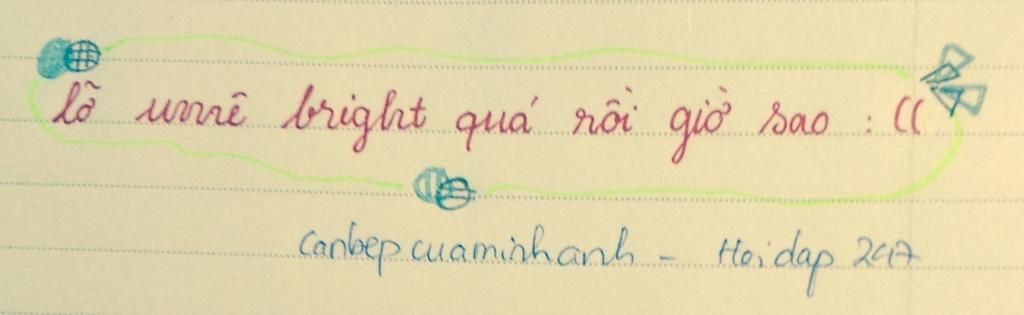 lỡ umê bright quá rồi giờ sao : ((
Canbepcuaminhanh - Hoidap 247